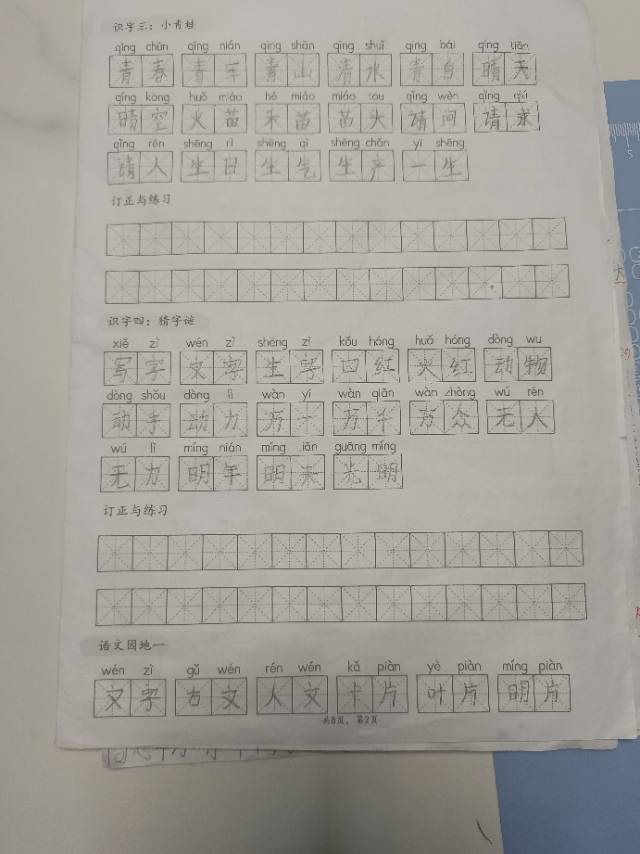 识字三：小青蛙
qīng chūn qīng nián qīng shān qīng shuǐ qīng bái qíng tiān
青春 青年 青山 清水 青白 晴天
qíng kōng huǒ miáo hé miáo miáo tou qǐng wèn qǐng qiú
晴空 火苗 禾苗 苗头 请问 请求
qǐng rén shēng rì shēng qì shēng chǎn yì shēng
请人 生日 生气 生产 一生
订正与练习
识字四：猜字谜
xiě zì wén zì shēng zì kǒu hóng huǒ hóng dòng wu
写字 文字 生字 口红 火红 动物
dòng shǒu dòng lì wàn yī wàn qiān wàn zhòng wú rén
动手 动力 万一 万千 万众 无人
wú lì míng nián míng guāng míng
无力 明年 明天 光明
订正与练习
语文园地一
wén zì gǔ wén rén wén kǎ piàn yè piàn míng piàn
文字 古文 人文 卡片 叶片 明片
共8页，第2页